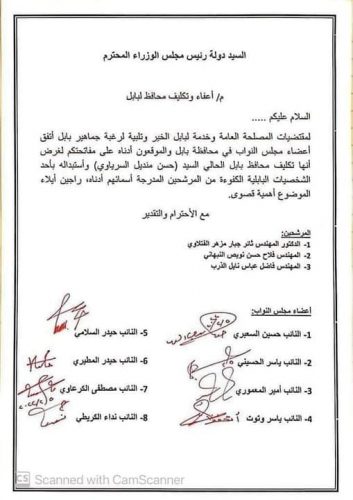 السيد دولة رئيس مجلس الوزراء المحترم
م/ أعفاء وتكليف محافظ لبابل
السلام عليكم .....
لمقتضيات المصلحة العامة وخدمة لبابل الخير وتلبية لرغبة جماهير بابل أتفق
أعضاء مجلس النواب في محافظة بابل والموقعون أدناه على مفاتحتكم لغرض
أنهاء تكليف محافظ بابل الحالي السيد (حسن منديل السرياوي) وأستبداله بأحد
الشخصيات البابلية الكفوءة من المرشحين المدرجة أسمائهم أدناه، راجين أيلاء
الموضوع أهمية قصوى.
مع الأحترام والتقدير
المرشحين:
1- الدكتور المهندس ثائر جبار مزهر الفتلاوي
2- المهندس فلاح حسن نويص النبهاني
3- المهندس فاضل عباس نايل الذرب
أعضاء مجلس النواب:
1- النائب حسين السعبري
2- النائب ياسر الحسيني
3- النائب أمير المعموري
4- النائب ياسر وتوت
5- النائب حيدر السلامي
6- النائب حيدر المطيري
7- النائب مصطفى الكرعاوي
8- النائب نداء الكريطي
CS Scanned with CamScanner